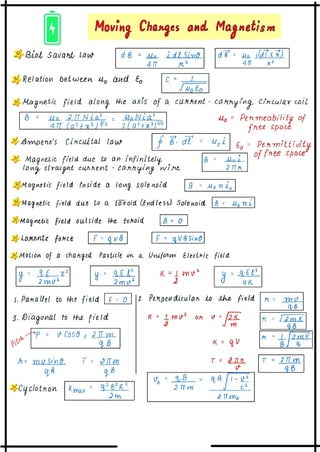 Moving Charges and Magnetism
Biot Savart law dB = μ₀/4π i dl Sinθ/r² d𝐁⃗ = μ₀/4π i(dl⃗ × r⃗)/r³
Relation between μ₀ and ε₀ C = 1/√μ₀ε₀
Magnetic field along the axis of a current-carrying, Circular coil
B = μ₀/4π 2πNia²/(a²+x²)^3/2 = μ₀Nia²/2(a²+x²)^3/2 μ₀ = Permeability of free space
Ampere's Circuital law ∮ B⃗. dl⃗ = μ₀i ε₀ = Permittivity of free space
Magnetic field due to an infinitely long straight current-carrying wire B = μ₀i/2πr
Magnetic field inside a long solenoid B = μ₀ni
Magnetic field due to a toroid (endless) Solenoid B = μ₀ni
Magnetic field outside the toroid B = 0
Lorentz force F = qvB F = qVBsinθ
Motion of a charged Particle in a Uniform Electric field
y = qE x²/2mv² y = qEl²/2mv² K = 1/2 mv² y = qEl²/4K
1. Parallel to the field F = 0 2. Perpendicular to the field r = mv/qB
3. Diagonal to the field K = 1/2 mv² or v = √2K/m r = √2mK/qB
Pitch P = v Cosθ × 2πm/qB K = qV r = 1/B √2mV/q
r = mv sinθ/qB T = 2πm/qB T = 2πr/v T = 2πm/qB
Cyclotron Kmax = q²B²R²/2m ν₀ = qB/2πm = qB√1-v²/c²/2πm₀